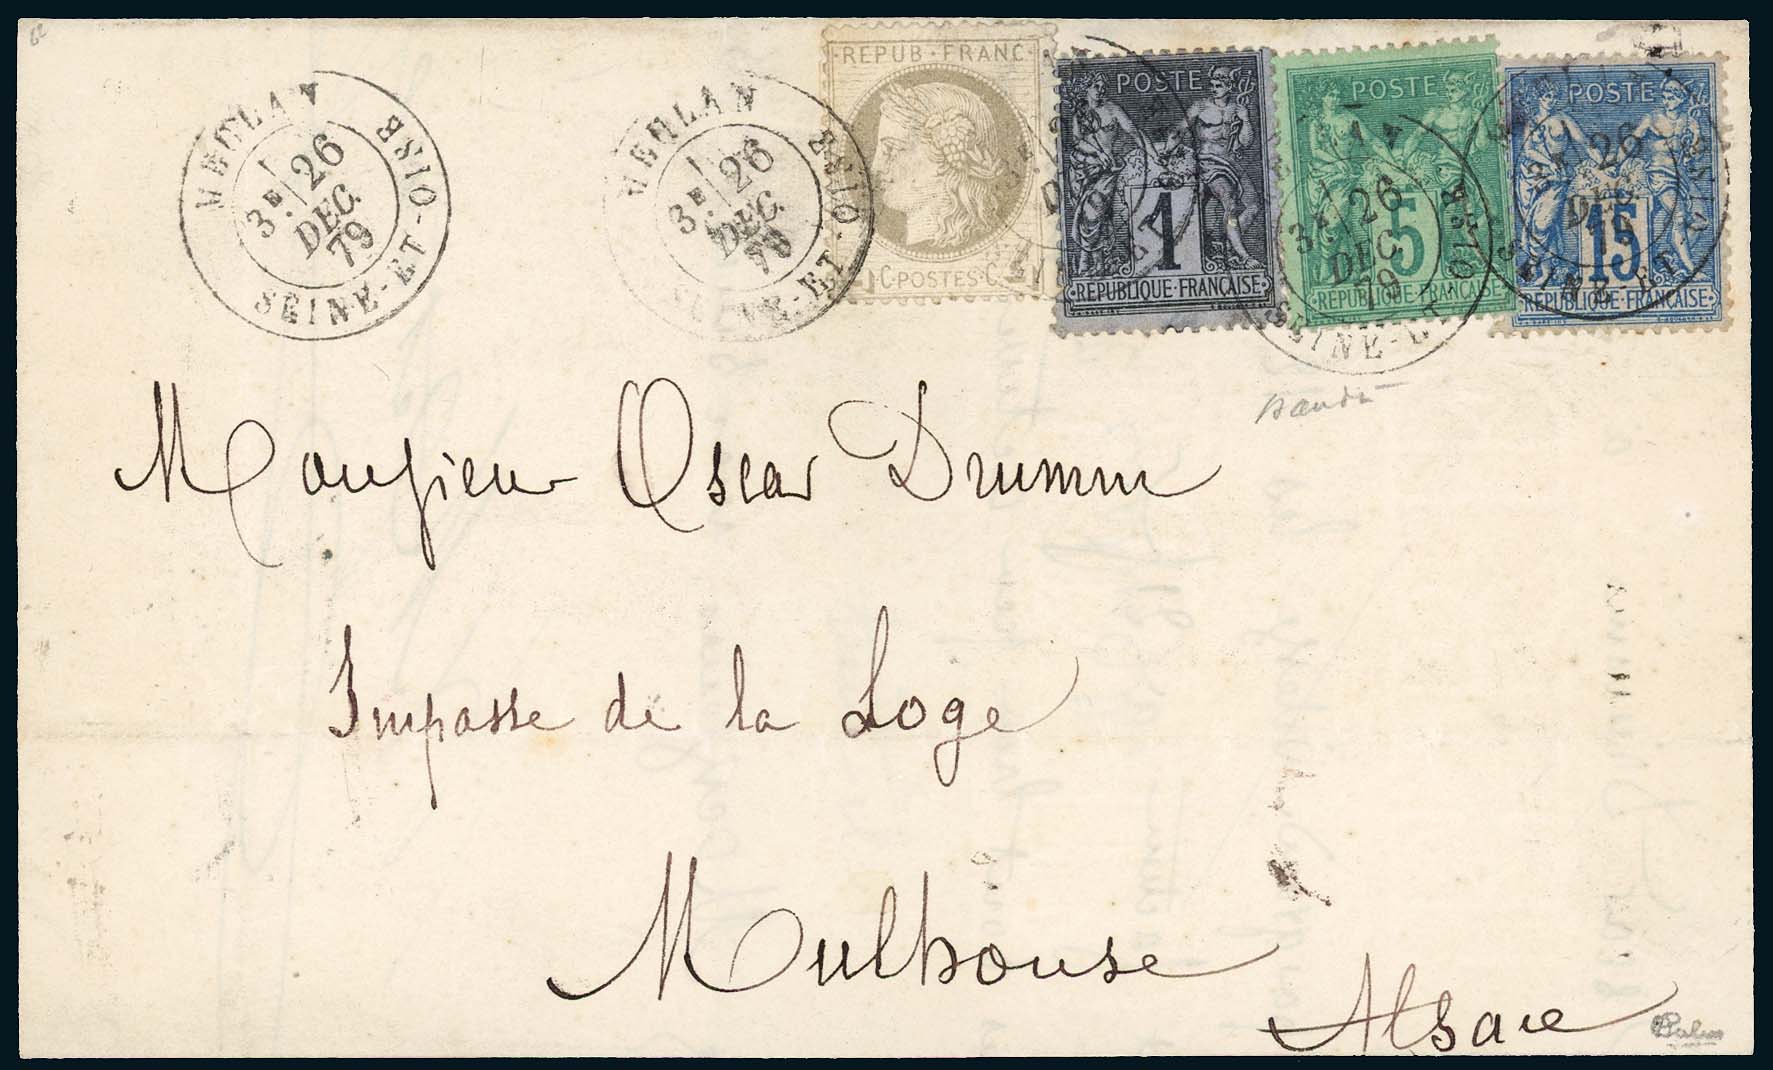 MEULAN
3E 26
DEC.
79
SEINE-ET-OISE
MEULAN
3E 26
DEC.
79
SEINE-ET-OISE
REPUB·FRANC·
4 C·POSTES·C· 4
POSTE
1
REPUBLIQUE FRANÇAISE
POSTE
5
REPUBLIQUE FRANÇAISE
3E 26
DEC.
79
SEINE-ET-OISE
POSTE
15
REPUBLIQUE FRANÇAISE
26
DEC
SEINE-ET
Monsieur Oscar Drumm
Impasse de la Loge
Mulhouse
Alsace